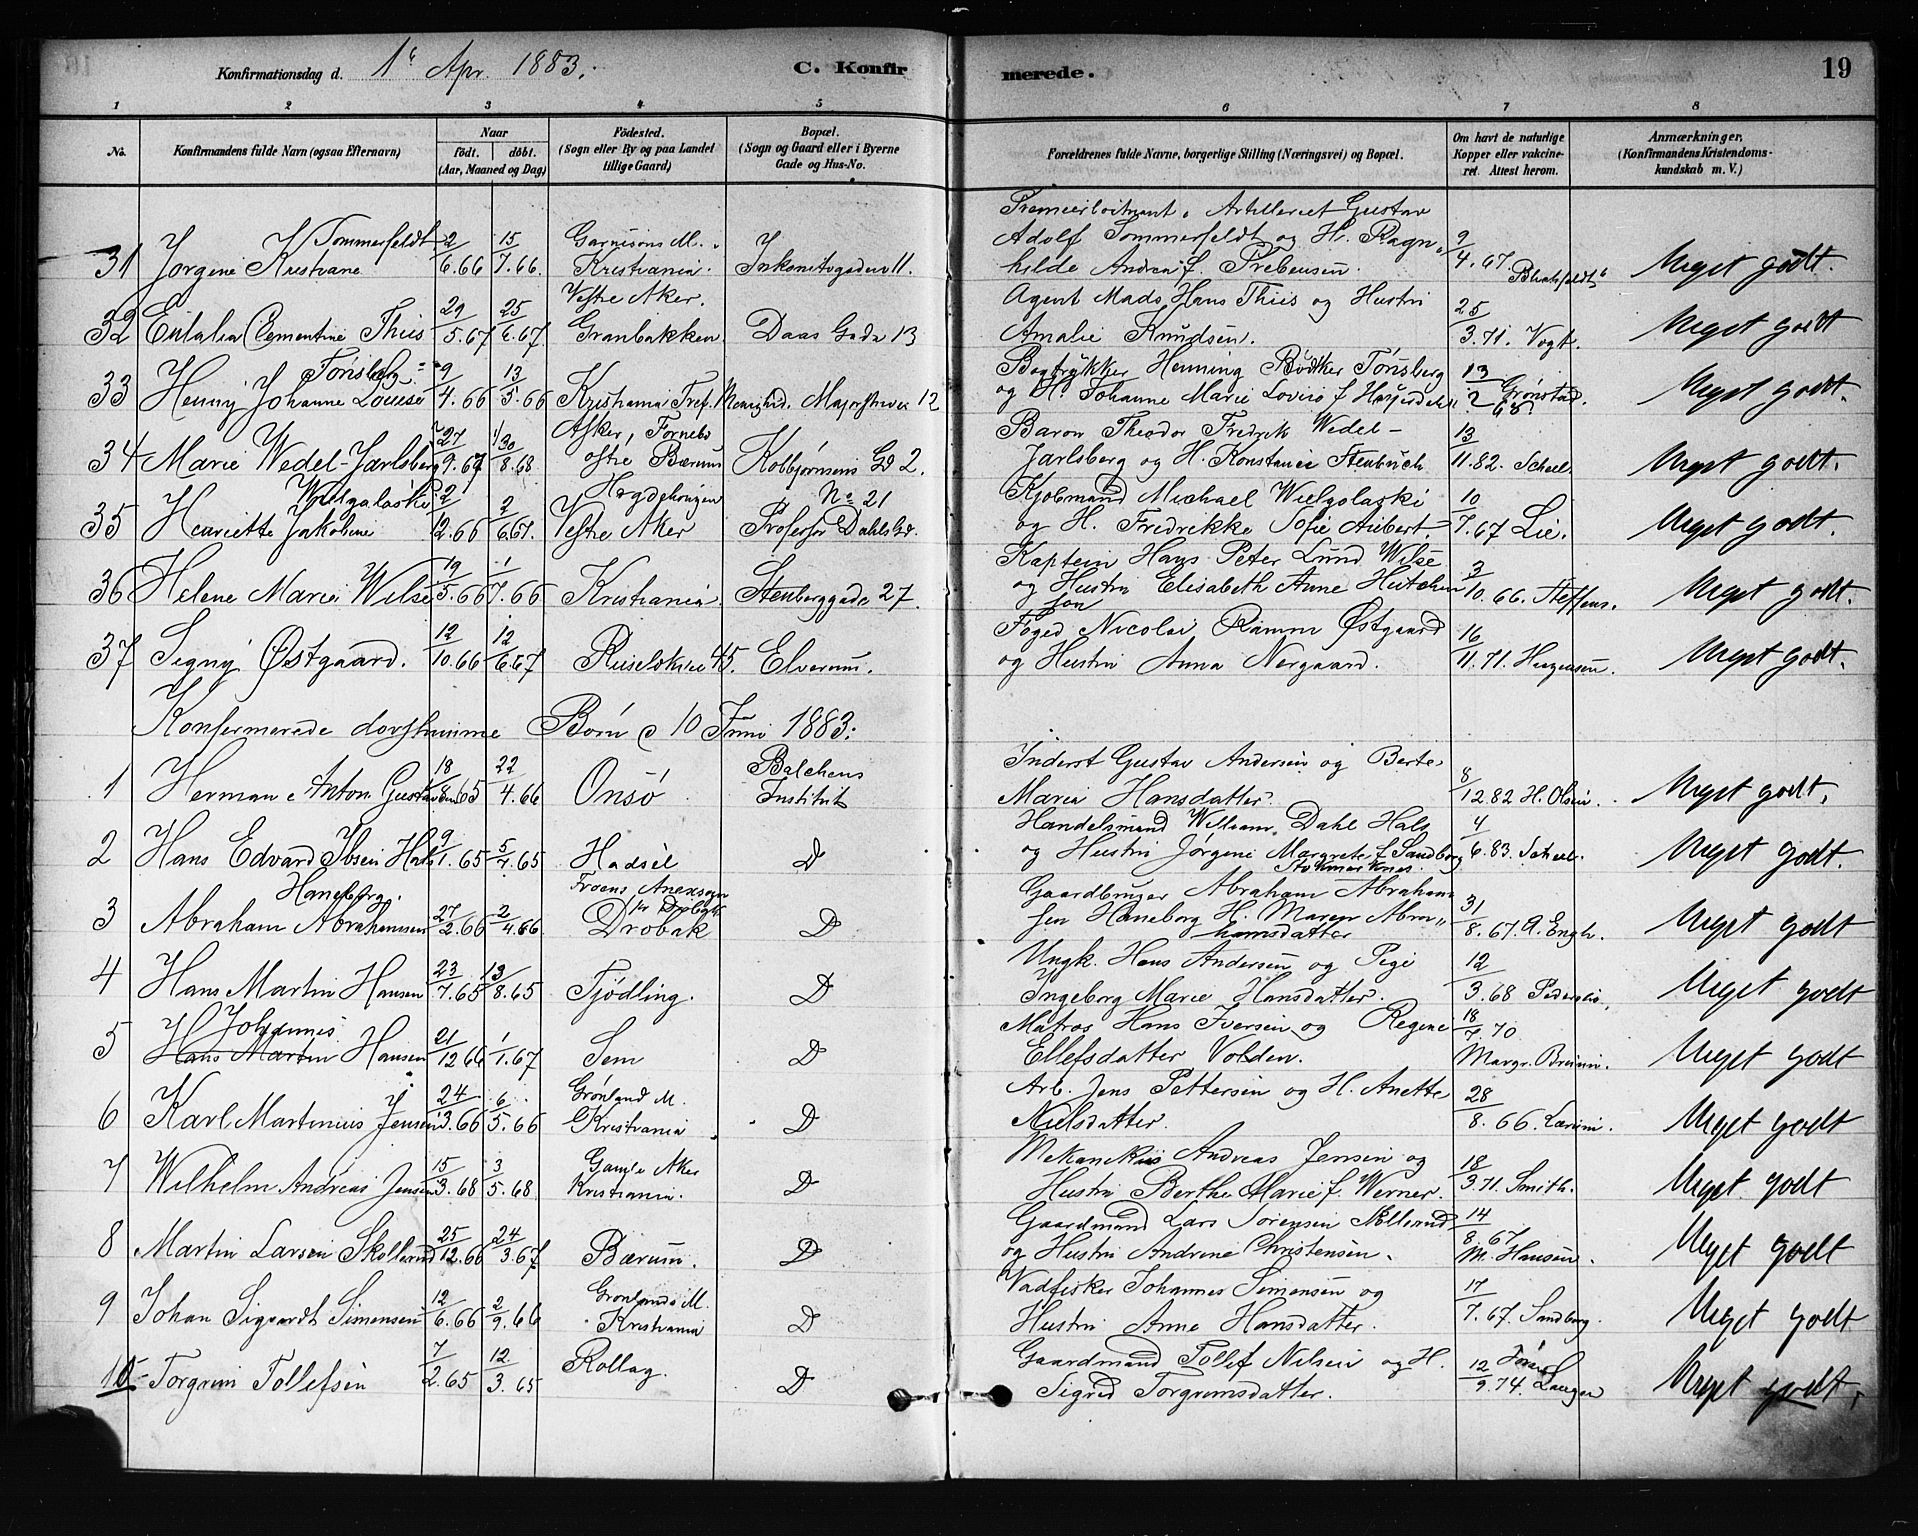 Konfirmationsdag d. 1ste Apr. 1883. C. Konfirmerede. 19
1 2 3 4 5 6 7 8
No. Konfirmandens fulde Navn (ogsaa Efternavn) Naar født. døbt. (Aar, Maaned og Dag) Fødested. (Sogn eller By og paa Landet tillige Gaard) Bopæl. (Sogn og Gaard eller i Byerne Gade og Hus-No. Forældrenes fulde Navne, borgerlige Stilling (Næringsvei) og Bopæl. Om havt de naturlige Kopper eller vakcineret. Attest herom. Anmærkninger, (Konfirmandens Kristendomskundskab m. V.)
31 Jørgine Kristiane Sommerfeldt 2/6.66 15/7.66. Garnisons M. Kristiania. Inkognitogaden 11. Premierløitnant i Artilleriet Gustav Adolf Sommerfeldt og H. Ragnhilde Andrea f. Prebensen. 9/4.67. Meget godt.
32 Eulalia Clementine Thiis 29/5.67 25/6.67 Vestre Aker. Granbakken Daas Gade 13 Agent Mads Hans Thiis og Hustru Amalie Knudsen. 25/3.71. Vogt. Meget godt
33 Henny Johanne Louise Tønsberg 9/4.66 13/5.66 Kristiania Tref. Menighed. Majorstuvei 12 Bogtrykker Henning Bødtker Tønsberg og H. Johanne Marie Lovise f. 13/2 68 Grønstad. Meget godt.
34 Marie Wedel-Jarlsberg 27/9.67 30/8.68 Asker, Fornebo østre Bærum Kolbjørnsens Gd 2. Baron Theodor Fredrik Wedel-Jarlsberg og H. Konstance Stenbuch 13/11.82. Scheel. Meget godt.
35 Henriette Jakobine Wielgolaski 2/12.66 2/6.67. Hægdehougen Vestre Aker No 21 Professor Dahls Gd. Kjøbmand Michael Wielgolaski og H. Fredrikke Sofie Aubert. 10/7.67 Lie. Meget godt.
36 Helene Marie Wilse 19/5.66 1/7.66 Kristiania. Stenberggade 27. Kaptein Hans Peter Lund Wilse og Hustru Elisabeth Anne Hutchinson 3/10.66. Steffens. Meget godt.
37 Signy Østgaard. 12/10.66 12/6.67 Ruseløkvei 45. Elverum. Foged Nicolai Ramm Østgaard og Hustru Anna Nergaard. 16/11.71. Meget godt.
Konfermerede døvstumme Børn d 10 Juni 1883:
1 Herman Anton Gustavsen 18/8.65 22/4.66 Onsø Balchens Institut Inderst Gustav Andersen og Berte Maria Hansdatter. 8/12.82 H. Olsen. Meget godt.
2 Hans Edvard Ibsen Hals 9/1.65 5/7.65 Hadsel D Handelsmand William Dahl Hals og Hustru Jørgine Margrete f. Sandborg Stokmarknes. 4/6.83. Scheel. Meget godt.
3 Abraham Abrahamsen Haneborg. 27/2.66 2/4.66 Froens Anexsogn Drøbak D Gaardbruger Abraham Abrahamsen Haneborg H. Maren Abrahamsdatter 31/8.67. A. Engh. Meget godt
4 Hans Martin Hansen 23/7.65 13/8.65 Tjødling. D Ungk. Hans Andersen og Pige Ingeborg Marie Hansdatter. 12/3.68 Pedersen. Meget godt
5 Hans Martin Johannes Hansen 21/12 66 1/1.67 Sem D Matros Hans Iversen og Regine Ellefsdatter Volden. 18/7.70 Meget godt
6 Karl Martinius Jensen 24/3.66 6/5.66 Grønland M. Kristiania D Arb. Jens Pettersen og H. Anette Nielsdatter. 28/8.66. Meget godt
7 Wilhelm Andreas Jensen 15/3.68 3/5.68 Gamle Aker Kristiania. D Mekanikus Andreas Jensen og Hustru Berthe Marie f. Werner. 18/3.71. Smith. Meget godt
8 Martin Larsen Skollerud 25/12.66 24/3.67 Bærum. D Gaardmand Lars Sørensen og Hustru Andrine Christensen. 14/8.67 M. Hansen. Meget godt
9 Johan Sigvardt Simensen 12/6.66 2/9.66 Grønlands M. Kristiania D Vadfisker Johannes Simensen og Hustru Anne Hansdatter. 17/7.67. Sandberg. Meget godt
10 Torgrim Tollefsen 7/2.65 12/3.65 Rollag. D Gaardmand Tollef Nilsen og H. Sigrid Torgrimsdatter. 12/9.74. Meget godt.